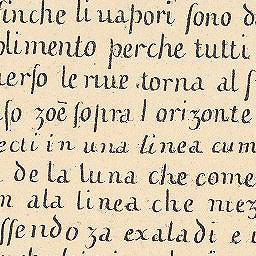 finche li uapori sono d
plimento perche tutti
uerso le riue torna al s
so zoē sopra l orizonte
ecti in una linea cum
de la luna che come
n ala linea che mez
ssendo za exaladi e